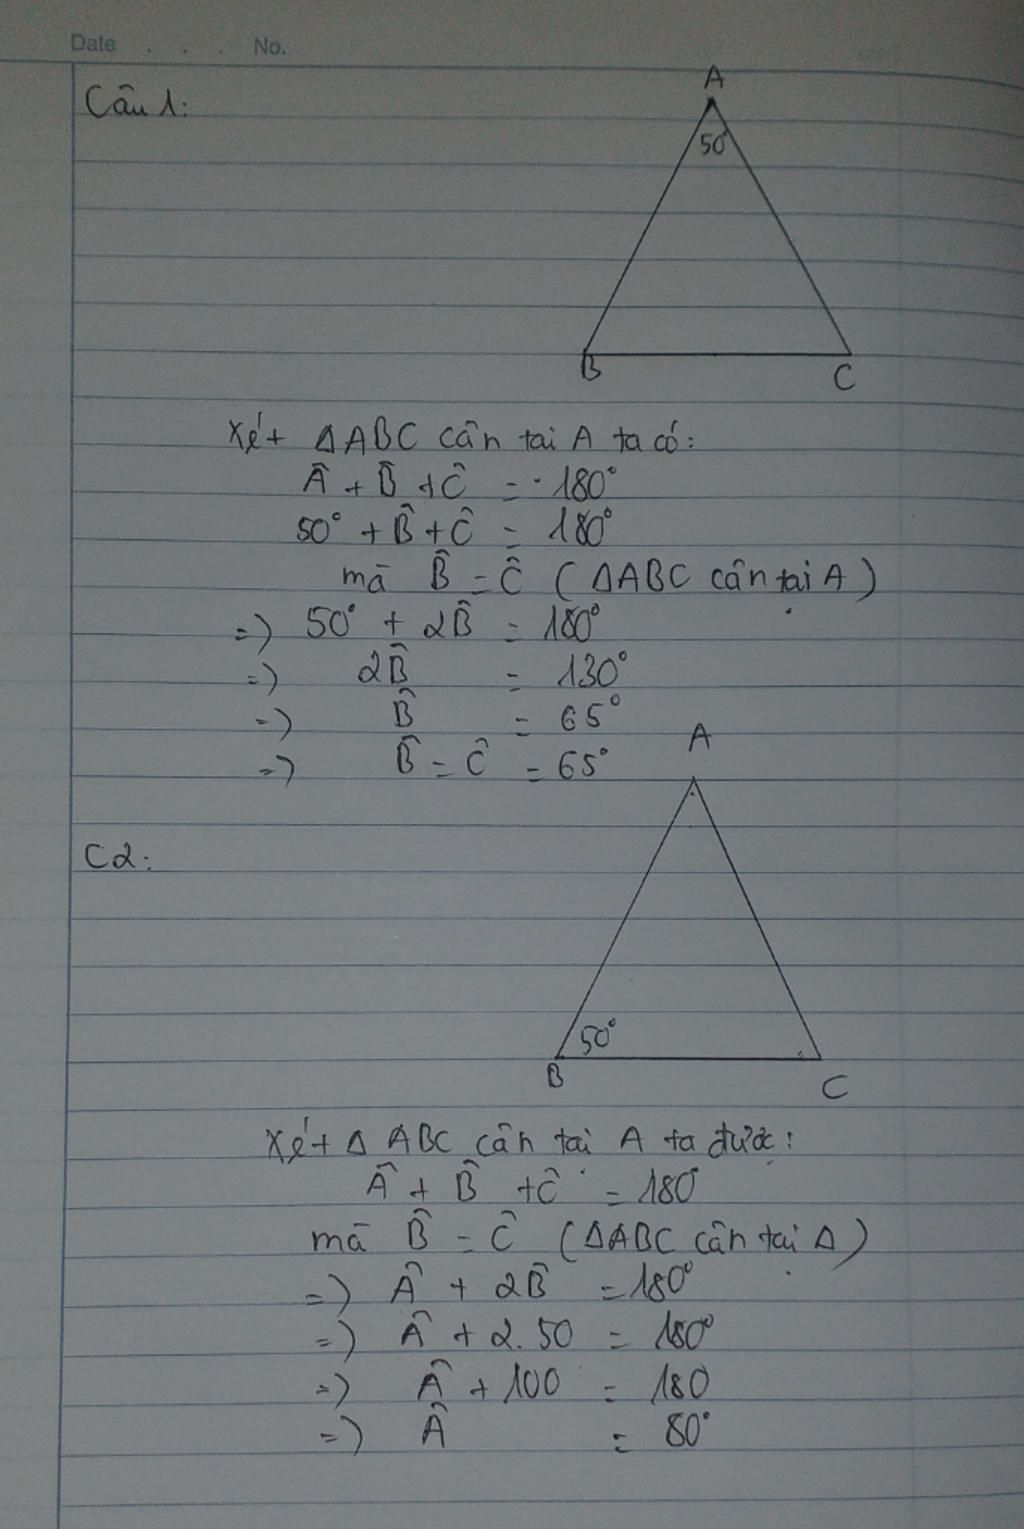 Date . . . No.
Câu 1:
A
50°
B
C
Xét ΔABC cân tại A ta có:
Â + B̂ + Ĉ = 180°
50° + B̂ + Ĉ = 180°
mà B̂ = Ĉ (ΔABC cân tại A)
=) 50° + 2B̂ = 180°
=) 2B̂ = 130°
=) B̂ = 65°
=) B̂ = Ĉ = 65°
A
C2:
50°
B
C
Xét Δ ABC cân tại A ta được:
Â + B̂ + Ĉ = 180°
mà B̂ = Ĉ (ΔABC cân tại A)
=) Â + 2B̂ = 180°
=) Â + 2.50 = 180°
=) Â + 100 = 180
=) Â = 80°